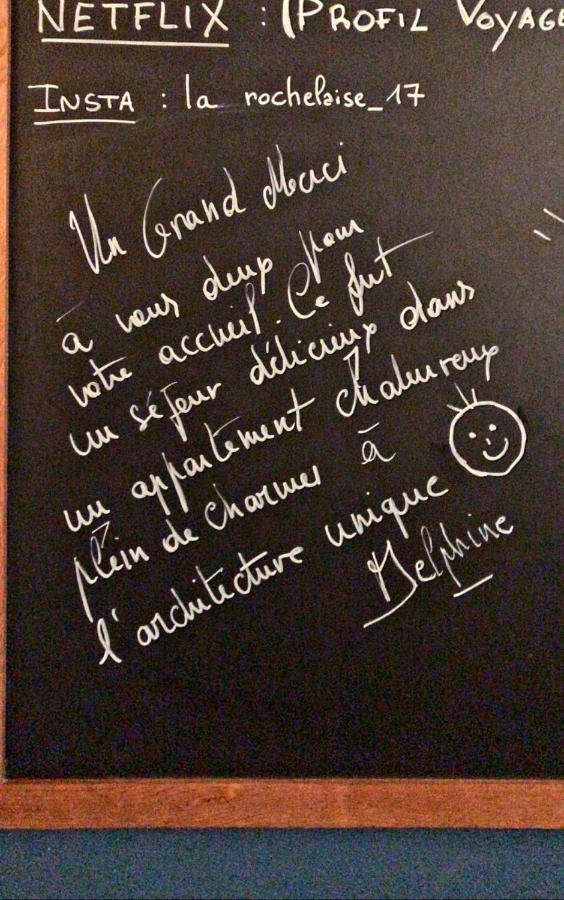 NETFLIX : (PROFIL VOYAGE
INSTA : la rochelaise_17
Un Grand Merci
à vous deux pour
votre accueil. Ce fut
un séjour délicieux dans
un appartement chaleureux
plein de charmes à
l'architecture unique
Delphine